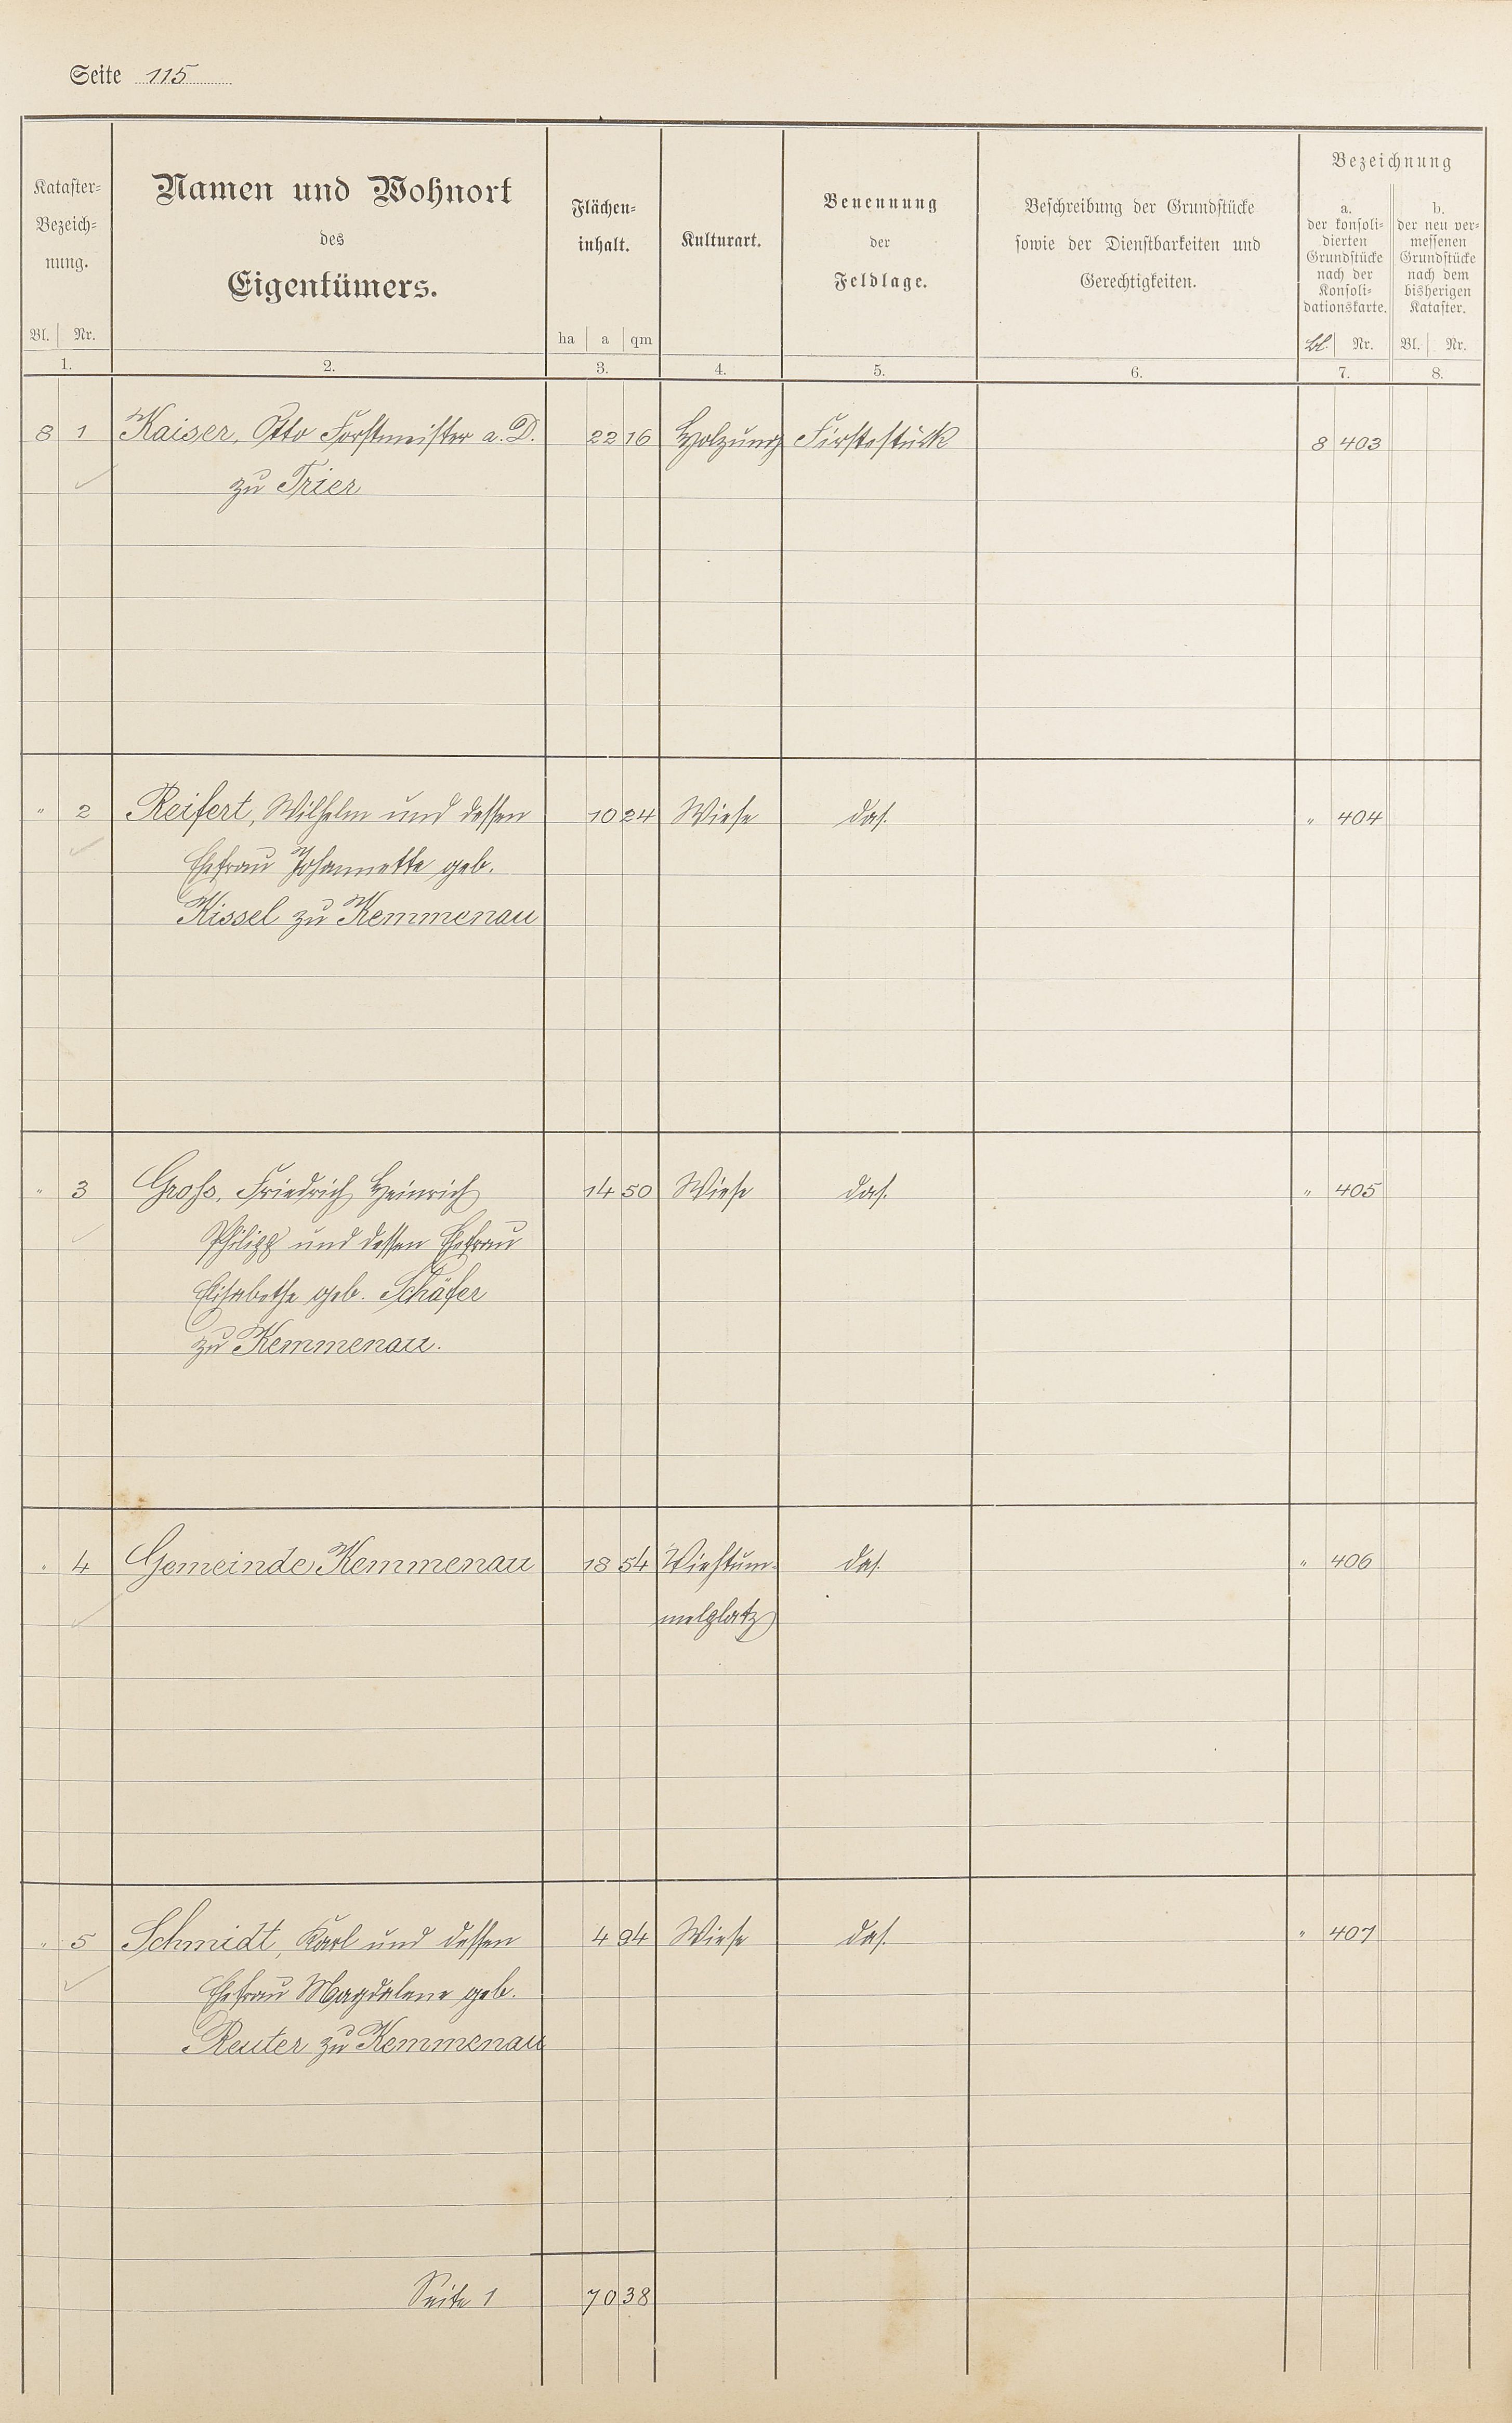 Seite 115
Kataster-
Bezeich-
nung.
Bl. Nr.
1.
Namen und Wohnort
des
Eigentümers.
2.
Flächen-
inhalt.
ha a qm
3.
Kulturart.
4.
Benennung
der
Feldlage.
5.
Beschreibung der Grundstücke
sowie der Dienstbarkeiten und
Gerechtigkeiten.
6.
Bezeichnung
a.
der konsoli-
dierten
Grundstücke
nach der
Konsoli-
dationskarte.
Bl. Nr.
7.
b.
der neu ver-
messenen
Grundstücke
nach dem
bisherigen
Kataster.
Bl. Nr.
8.
8 1 Kaiser, Otto Forstmeister a. D. 22 16 Holzung Firstestück 8 403
zu Trier
" 2 Reifert, Wilhelm und dessen 10 24 Wiese das. " 404
Ehefrau Johannette geb.
Kissel zu Kemmenau
" 3 Gross, Friedrich Heinrich 14 50 Wiese das. " 405
Philipp und dessen Ehefrau
Elisabethe geb. Schäfer
zu Kemmenau.
" 4 Gemeinde Kemmenau 18 54 Viehtum- das. " 406
melplatz
" 5 Schmidt, Karl und dessen 4 94 Wiese das. " 407
Ehefrau Magdalene geb.
Reuter zu Kemmenau
Seite 1 70 38